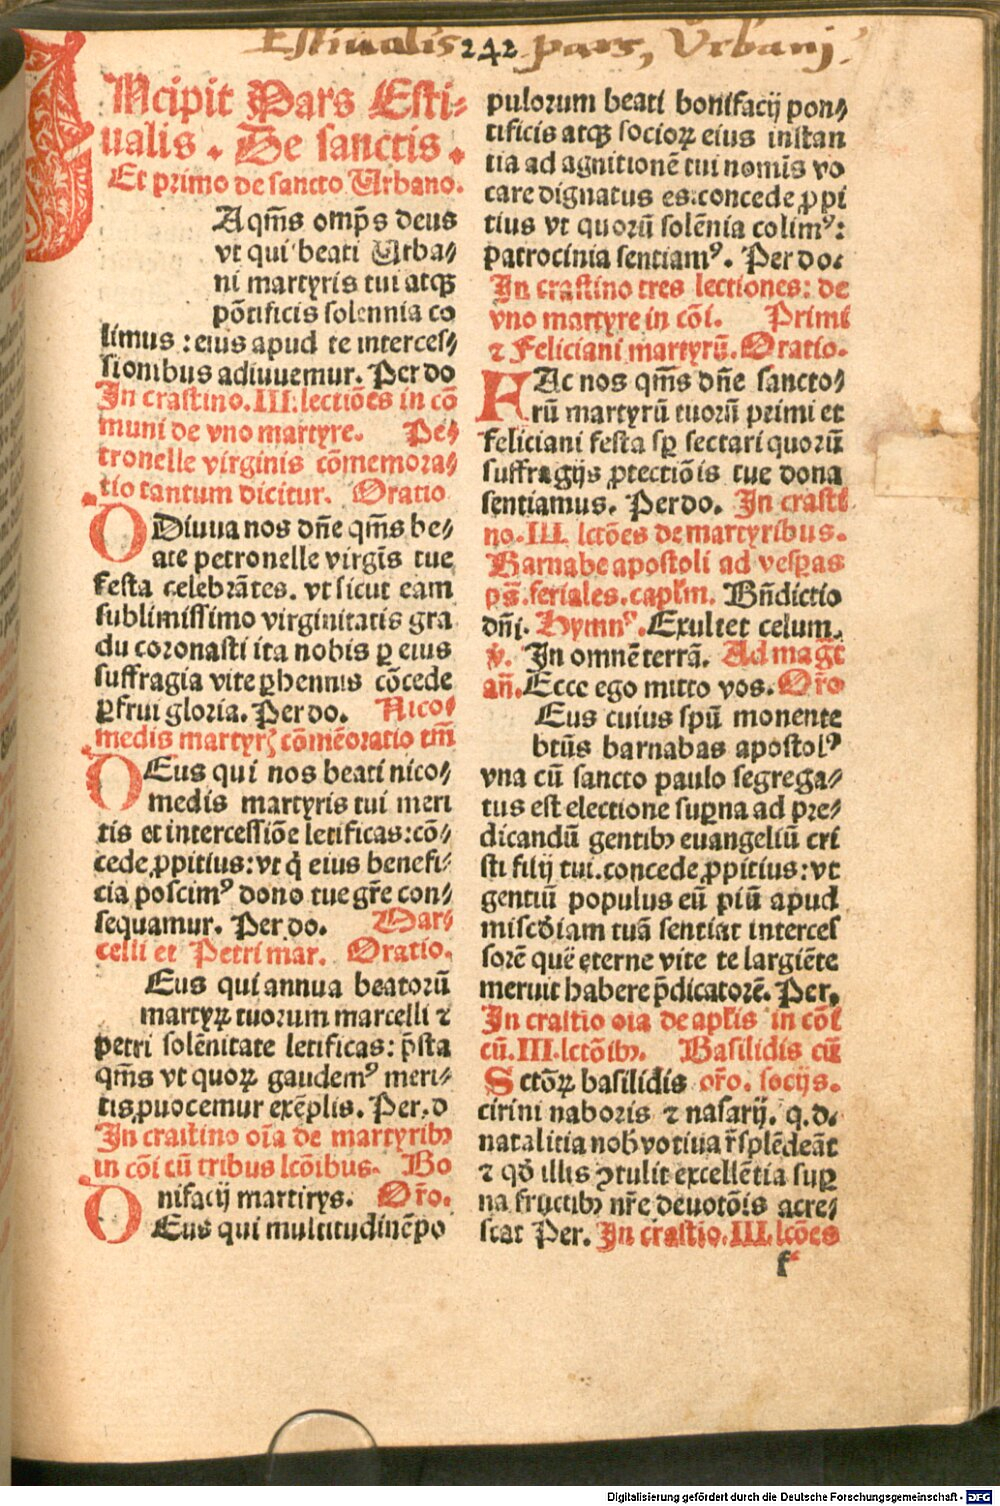 Estiualis 242 pars, Vrbanj.
INcipit Pars Esti⸗
ualis. De sanctis.
Et primo de sancto Urbano.
DA qm̄s omp̄s deus
vt qui beati Urba⸗
ni martyris tui atqꝫ
pōtificis solennia co
limus: eius apud te interces⸗
sionibus adiuuemur. Per do
In crastino. III. lectiōes in cō
muni de vno martyre. Pe⸗
tronelle virginis cōmemora⸗
tio tantum dicitur. Oratio
ADiuua nos dn̄e qm̄s be⸗
ate petronelle virgīs tue
festa celebrātes. vt sicut eam
sublimissimo virginitatis gra
du coronasti ita nobis ꝑ eius
suffragia vite ꝑhennis cōcede
ꝑfrui gloria. Per do. Nico⸗
medis martyrꝭ cōmēoratio tm̄
DEus qui nos beati nico⸗
medis martyris tui meri
tis et intercessiōe letificas: cō⸗
cede ꝓpitius: vt q̇ eius benefi⸗
cia poscimꝰ dono tue gr̄e con⸗
sequamur. Per do. Mar⸗
celli et Petri mar. Oratio.
Eus qui annua beatorū
martyꝝ tuorum marcelli ⁊
petri solēnitate letificas: p̄sta
qm̄s vt quoꝝ gaudemꝰ meri⸗
tis ꝓuocemur exēplis. Per. d
In crastino oīa de martyribꝫ
in cōi cū tribus lcōibus. Bo
nifacij martirys. Or̄o.
DEus qui multitudinē po
pulorum beati bonifacij pon⸗
tificis atqꝫ socioꝝ eius instan
tia ad agnitionē tui nomīs vo
care dignatus es: concede ꝓpi
tius vt quorū solēnia colimꝰ:
patrocinia sentiamꝰ. Per do.
In crastino tres lectiones: de
vno martyre in cōi. Primi
⁊ Feliciani martyrū. Oratio.
FAc nos qm̄s dn̄e sancto⸗
rū martyrū tuorū primi et
feliciani festa sꝑ sectari quorū
suffragijs ꝓtectiōis tue dona
sentiamus. Per do. In crasti
no. III. lctōes de martyribus.
Barnabe apostoli ad vesꝑas
ps̄. feriales. capl̄m. Bn̄dictio
dn̄i. Hymnꝰ. Exultet celum.
v̄. In omnē terrā. Ad magt̄
an̄. Ecce ego mitto vos. Or̄o
Eus cuius spū monente
btūs barnabas apostolꝰ
vna cū sancto paulo segrega⸗
tus est electione suꝑna ad pre⸗
dicandū gentibꝫ euangeliū cri
sti filij tui. concede ꝓpitius: vt
gentiū populus eū piū apud
misc̄diam tuā sentiat interces
sorē quē eterne vite te largiēte
meruit habere p̄dicatorē. Per.
In crastio oīa de apl̄is in cōi
cū. III. lctōibꝫ. Basilidis cū
Sctōꝝ basilidis or̄o. socijs.
cirini naboris ⁊ nasarij. q. d.
natalitia nob̄ votiua r̄splēdeāt
⁊ qḋ illis ꝯtulit excellētia suꝑ
na fructibꝫ nr̄e deuotōis acre⸗
scat Per. In crastio. III. lcōes
f
Digitalisierung gefördert durch die Deutsche Forschungsgemeinschaft - DFG